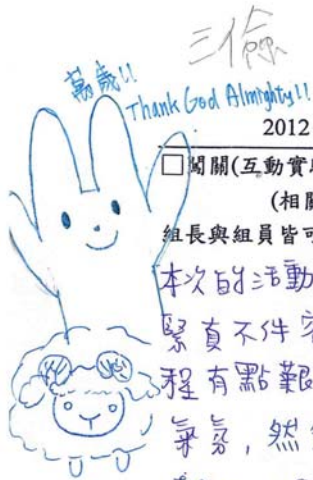 三儉
萬歲!!
Thank God Almighty!!
2012
□闖關(互動實
(相關
組長與組員皆可
本次的活動
緊真不件容
程有點艱
氣氛,然